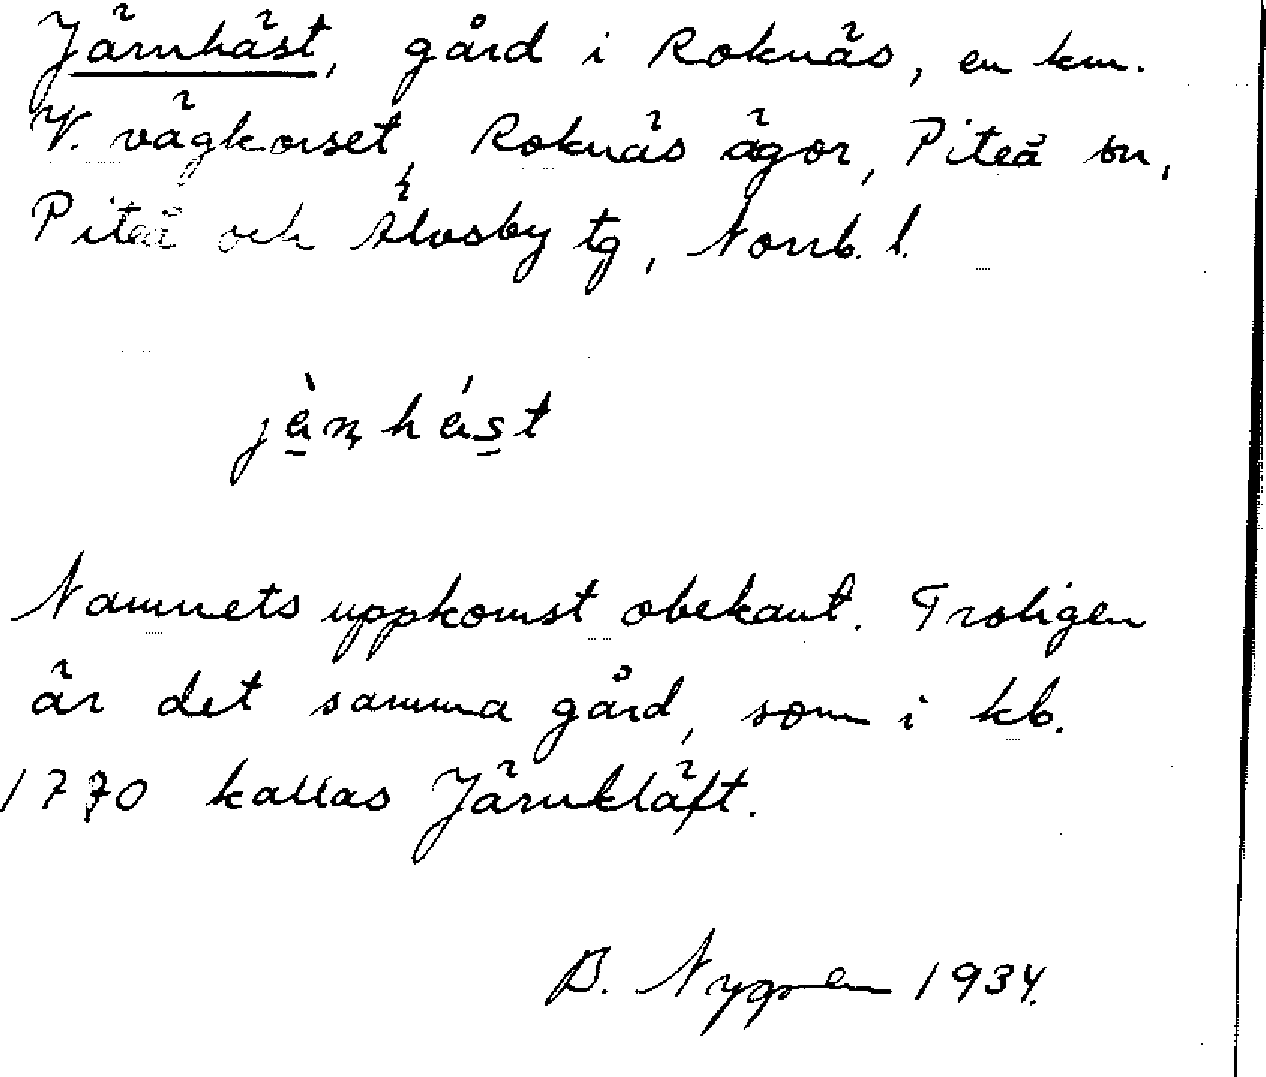 Järnhäst, gård i Roknäs, en km.
V. vägkorset, Roknäs ägor, Piteå sn,
Piteå och Älvsby tg, Norrb. l.
jä̀ṇhä́st
Namnets uppkomst obekant. Troligen
är det samma gård, som i kb.
1770 kallas Järnkläft.
B. Nygren 1934.